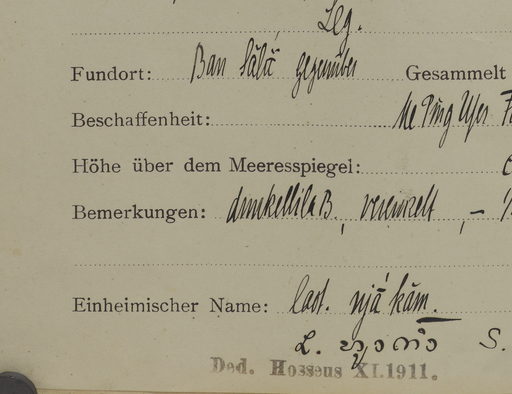 Leg.
Fundort: Ban Sălā gegenüber Gesammelt
Beschaffenheit: Me Ping Ufer
Höhe über dem Meeresspiegel:
Bemerkungen: dunkellila B., vereinzelt, –
Einheimischer Name: laot. njá kăm.
L. S.
Ded. Hosseus XI.1911.